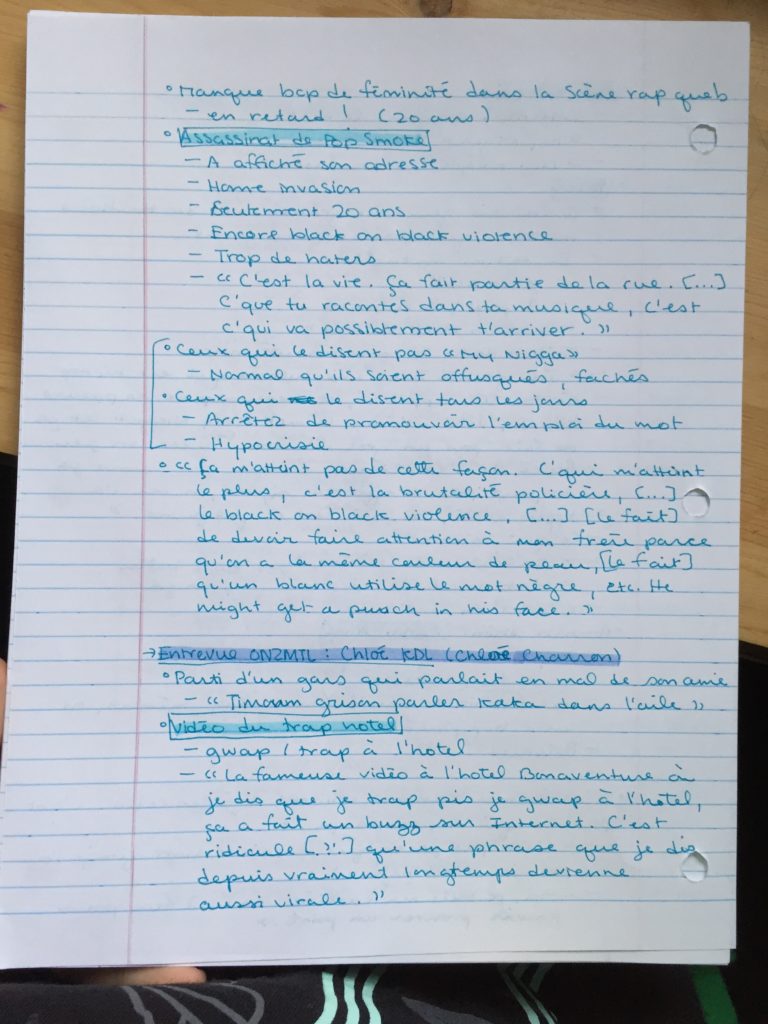 ° Manque bcp de féminité dans la scène rap queb
- en retard ! (20 ans)
° Assassinat de Pop Smoke
- A affiché son adresse
- Home invasion
- Seulement 20 ans
- Encore black on black violence
- Trop de haters
- « C'est la vie. Ça fait partie de la rue. [...]
C'que tu racontes dans ta musique, c'est
c'qui va possiblement t'arriver. »
° Ceux qui le disent pas « My Nigga »
- Normal qu'ils soient offusqués, fachés
° Ceux qui le disent tous les jours
- Arrêtez de promouvoir l'emploi du mot
- Hypocrisie
° « Ça m'atteint pas de cette façon. C'qui m'atteint
le plus, c'est la brutalité policière, [...]
le black on black violence, [...] [le fait]
de devoir faire attention à mon frère parce
qu'on a la même couleur de peau, [le fait]
qu'un blanc utilise le mot nègre, etc. He
might get a punch in his face. »
→ Entrevue ONZMTL : Chloé KDL (Chloé Charron)
° Parti d'un gars qui parlait en mal de son amie
- « Timoun grison parler kaka dans l'aile »
° Vidéo du trap hotel
- gwap / trap à l'hotel
- « La fameuse vidéo à l'hotel Bonaventure à
je dis que je trap pis je gwap à l'hotel,
ça a fait un buzz sur Internet. C'est
ridicule [...] qu'une phrase que je dis
depuis vraiment longtemps devienne
aussi virale. »